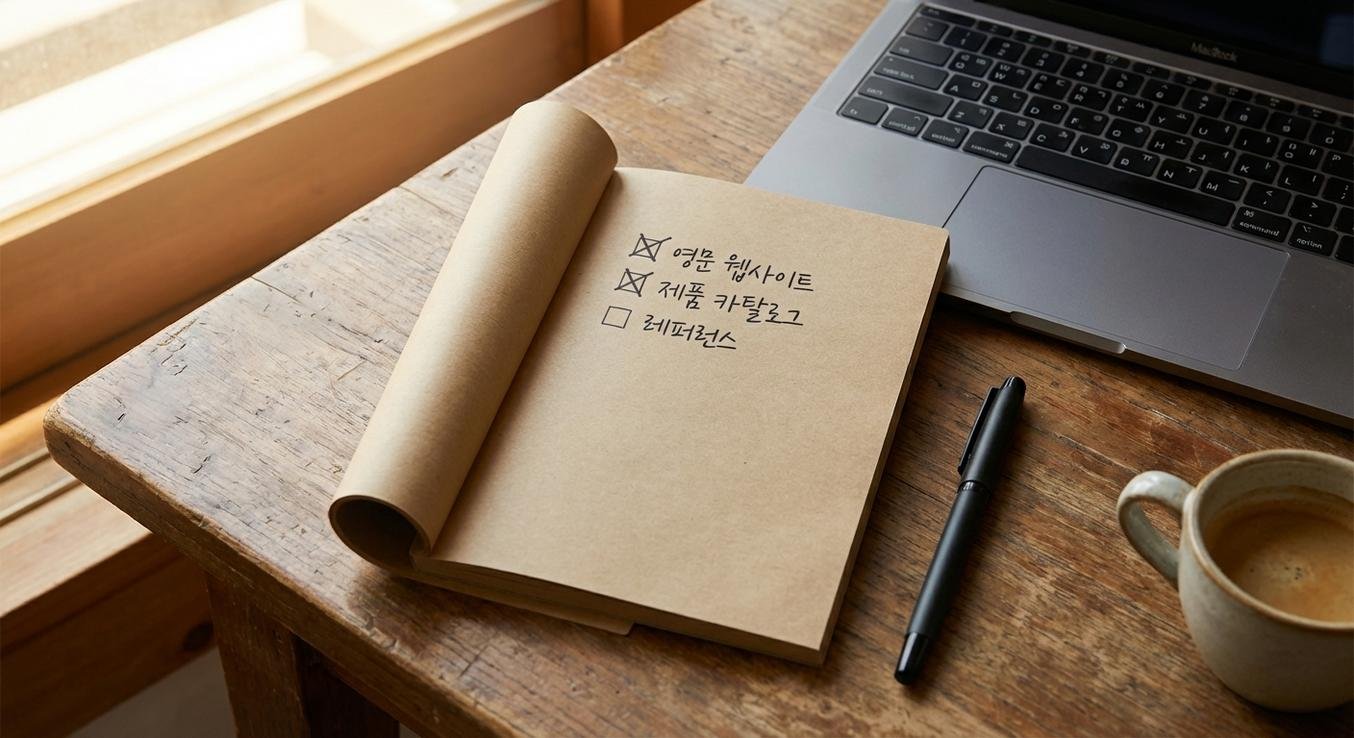 영문 웹사이트
제품 카탈로그
레퍼런스